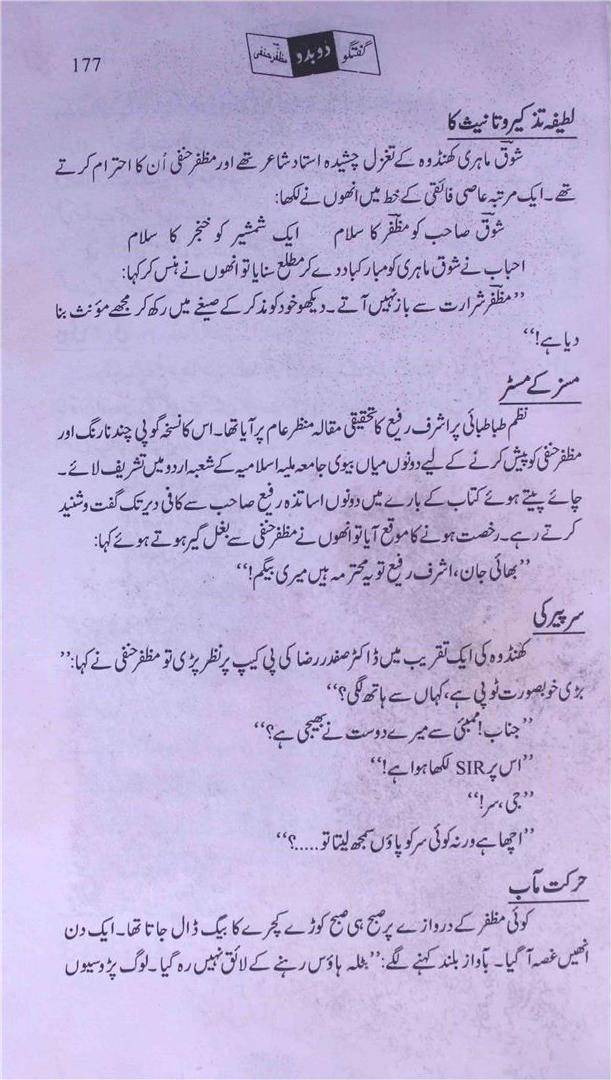 177
گفتگو دوبدو مظفر حنفی
لطیفہ تذکیر و تانیث کا
شوقؔ ماہری کھنڈوہ کے تغزل چشیدہ استاد شاعر تھے اور مظفر حنفی اُن کا احترام کرتے
تھے۔ ایک مرتبہ عاصی فائقی کے خط میں انھوں نے لکھا:
شوقؔ صاحب کو مظفرؔ کا سلام ایک شمشیر کو خنجر کا سلام
احباب نے شوق ماہری کو مبارکباد دے کر مطلع سنایا تو انھوں نے ہنس کر کہا:
’’مظفرؔ شرارت سے باز نہیں آتے۔ دیکھو خود کو مذکر کے صیغے میں رکھ کر مجھے مؤنث بنا
دیا ہے!‘‘
مسز کے مسٹر
نظم طباطبائی پر اشرف رفیع کا تحقیقی مقالہ منظر عام پر آیا تھا۔ اس کا نسخہ گوپی چند نارنگ اور
مظفر حنفی کو پیش کرنے کے لیے دونوں میاں بیوی جامعہ ملیہ اسلامیہ کے شعبۂ اردو میں تشریف لائے۔
چائے پیتے ہوئے کتاب کے بارے میں دونوں اساتذہ رفیع صاحب سے کافی دیر تک گفت و شنید
کرتے رہے۔ رخصت ہونے کا موقع آیا تو انھوں نے مظفر حنفی سے بغل گیر ہوتے ہوئے کہا:
’’بھائی جان، اشرف رفیع تو یہ محترمہ ہیں میری بیگم!‘‘
سر پیر کی
کھنڈوہ کی ایک تقریب میں ڈاکٹر صفدر رضا کی پی کیپ پر نظر پڑی تو مظفر حنفی نے کہا: ’’
بڑی خوبصورت ٹوپی ہے، کہاں سے ہاتھ لگی؟‘‘
’’جناب! ممبئی سے میرے دوست نے بھیجی ہے؟‘‘
’’اس پر SIR لکھا ہوا ہے!‘‘
’’جی، سر!‘‘
’’اچھا ہے ورنہ کوئی سر کو پاؤں سمجھ لیتا تو.....؟‘‘
حرکت مآب
کوئی مظفر کے دروازے پر صبح ہی صبح کوڑے کچرے کا بیگ ڈال جاتا تھا۔ ایک دن
انھیں غصہ آ گیا۔ بآواز بلند کہنے لگے: ’’بٹلہ ہاؤس رہنے کے لائق نہیں رہ گیا۔ لوگ پڑوسیوں